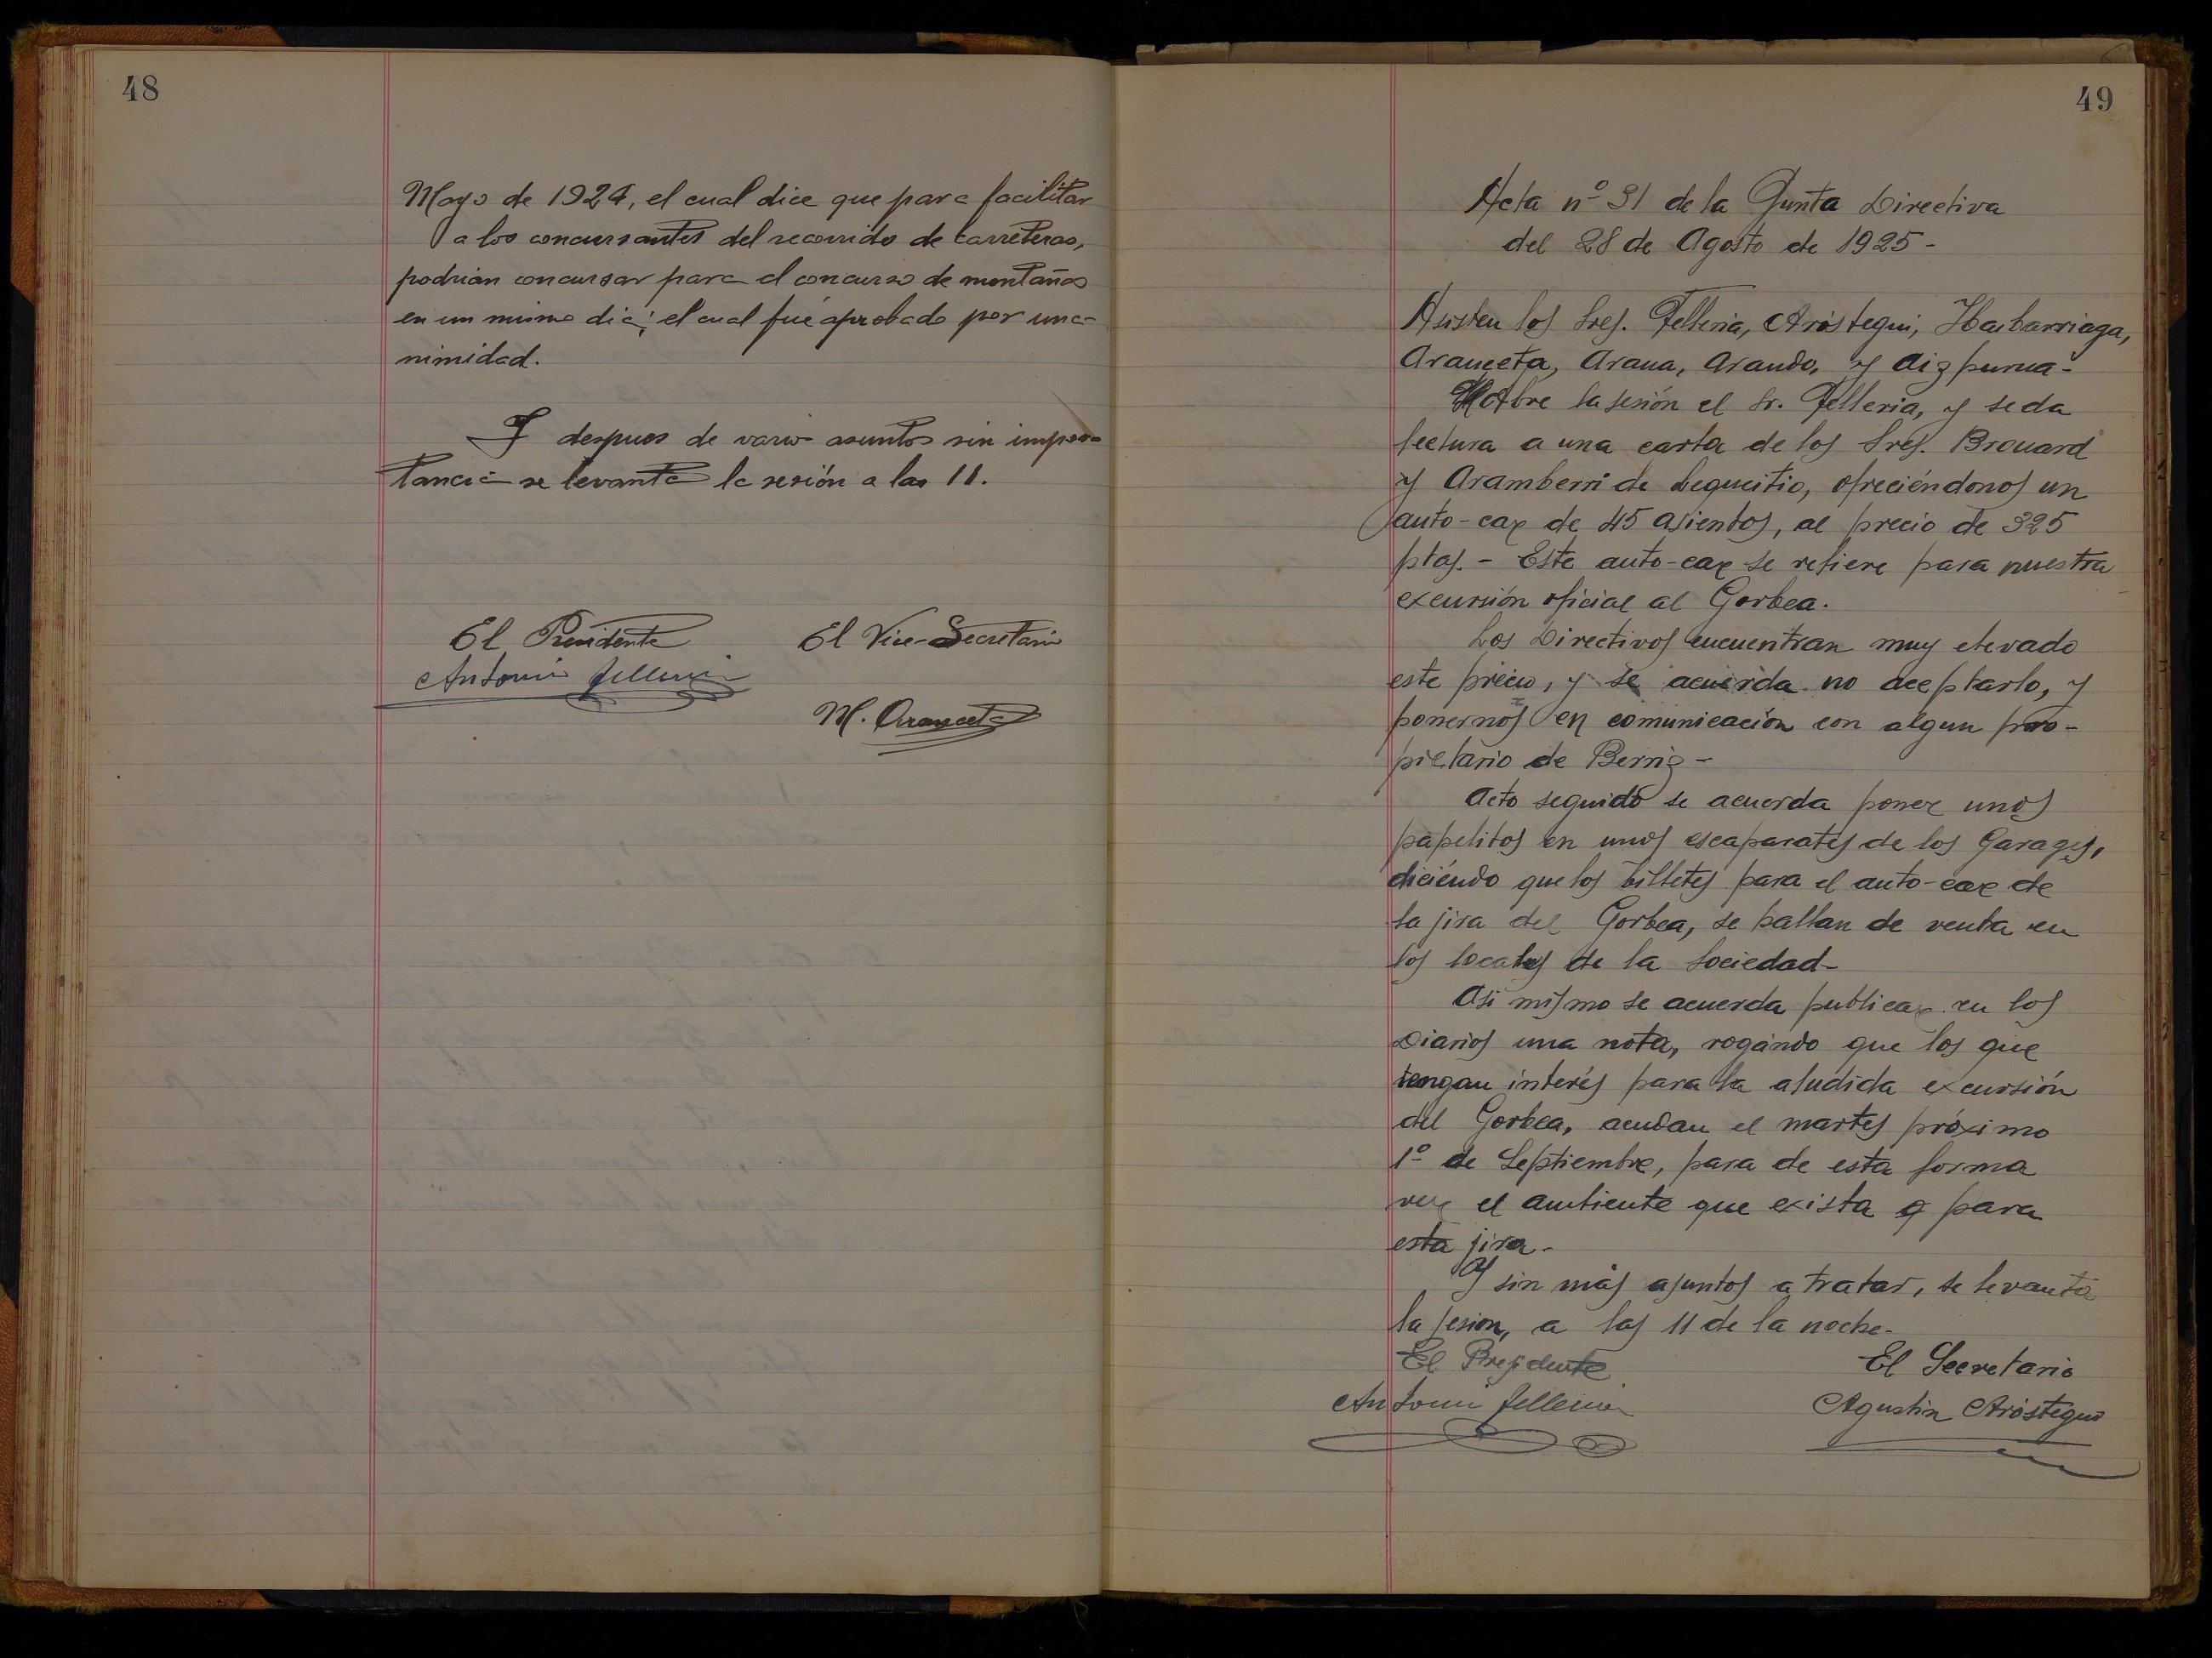 48
Mayo de 1924, el cual dice que para facilitar
a los concursantes del recorrido de carreteras,
podrian concursar para el concurso de montañas
en un mismo dia; el cual fué aprobado por una-
nimidad.
Y despues de varios asuntos sin impor-
tancia se levanta la sesión a las 11.
El Presidente
El Vice-Secretario
Antonio Telleria
M. Aranceta
49
Acta nº 31 de la Junta Directiva
del 28 de Agosto de 1925-
Asisten los Sres. Telleria, Aróstegui, Ibaibarriaga,
Aranceta, Arana, Arando, y Aizpurua-
Abre la sesión el Sr. Telleria, y se da
lectura a una carta de los Sres. Brouard
y Aramberri de Lequeitio, ofreciéndonos un
auto-car de 45 asientos, al precio de 325
ptas. - Este auto-car se refiere para nuestra
excursión oficial al Gorbea.
Los Directivos encuentran muy elevado
este precio, y se acuerda no aceptarlo, y
ponernos en comunicación con algun pro-
pietario de Berriz-
Acto seguido se acuerda poner unos
papelitos en unos escaparates de los Garages,
diciéndo que los billetes para el auto-car de
la jira del Gorbea, se hallan de venta en
los locales de la Sociedad-
Asi mismo se acuerda publicar en los
Diarios una nota, rogándo que los que
tengan interés para la aludida excursión
del Gorbea, acudan el martes próximo
1º de Septiembre, para de esta forma
ver el ambiente que exista para
esta jira-
Y sin más asuntos a tratar, se levanta
la sesion, a las 11 de la noche-
El Presidente
El Secretario
Antonio Telleria
Agustin Aróstegui